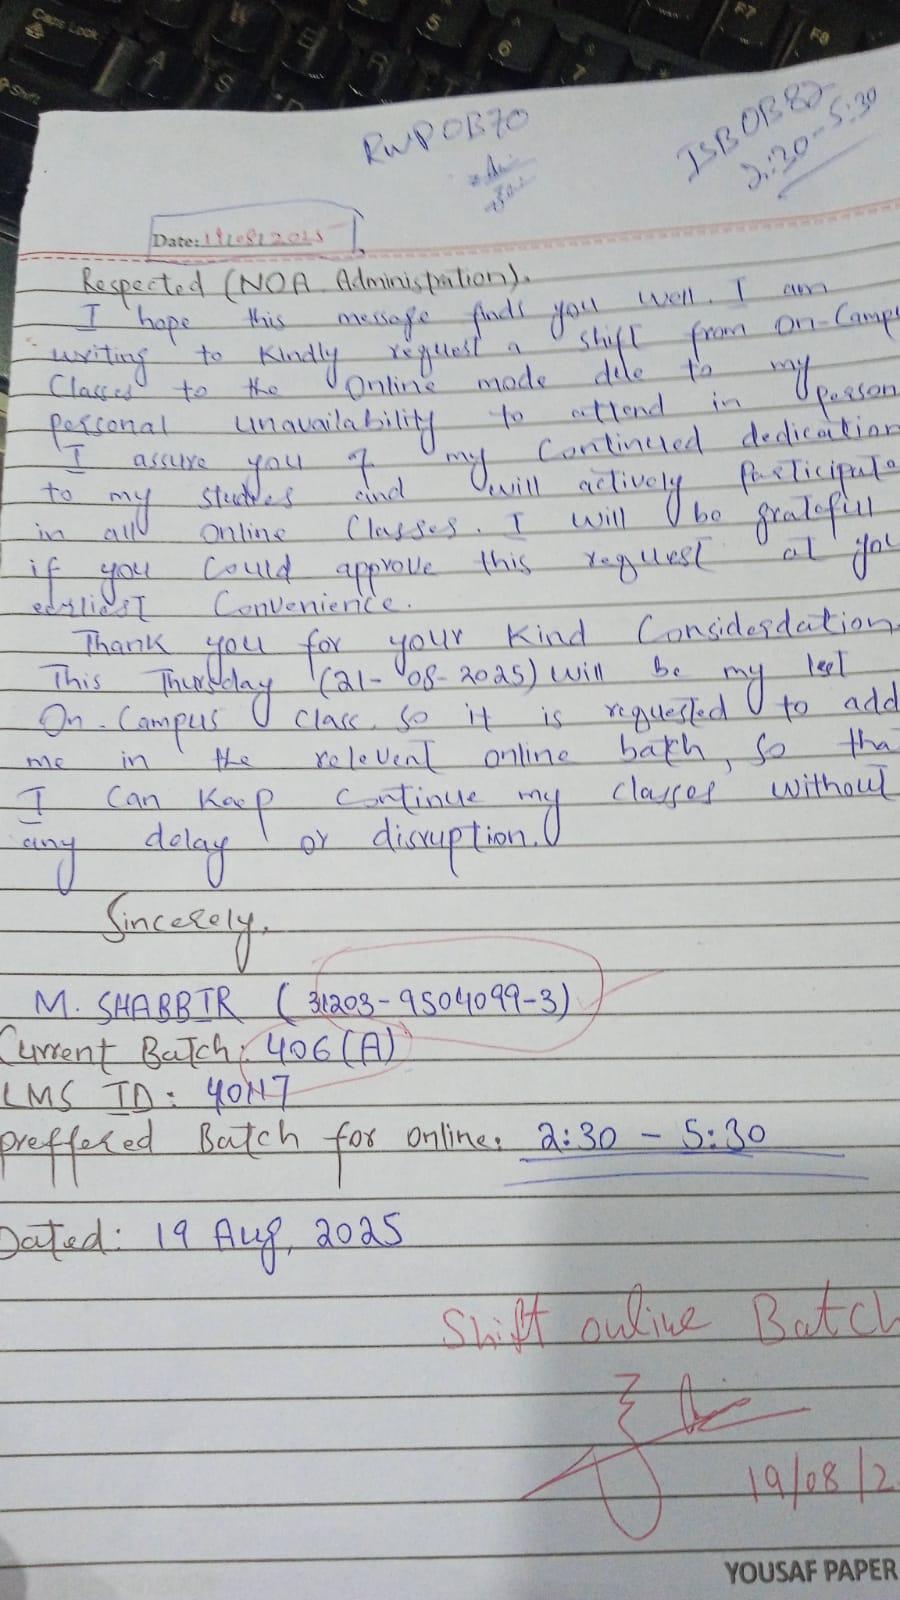 RWPOB70
ISBOB82
2:30-5:30
Date: 19/08/2025
Respected (NOA Administration).
I hope this message finds you well. I am
writing to Kindly request a shift from On-Camp
Classes to the Online mode due to my
personal unavailability to attend in person
I assure you of my Continued dedication
to my studies and will actively participate
in all online Classes. I will be grateful
if you Could approve this request at you
earliest Convenience.
Thank you for your Kind Considerdation
This Thursday (21-08-2025) will be my last
On-Campus class. so it is requested to add
me in the relevent online batch, so tha
I Can Keep Continue my classes without
any delay or disruption.
Sincerely,
M. SHABBIR (31203-9504099-3)
Current Batch: 406(A)
LMS ID: 40117
preffered Batch for online: 2:30 - 5:30
Dated: 19 Aug, 2025
Shift online Batch
19/08/2
YOUSAF PAPER